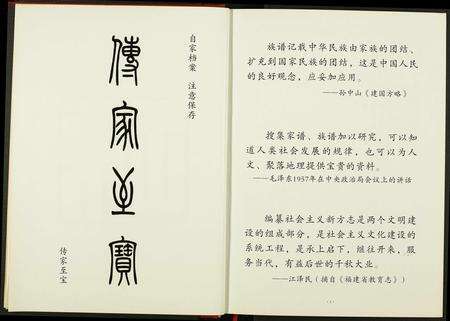 自家档案 注意保存
傳家至寶
传家至宝
族谱记载中华民族由家族的团结、
扩充到国家民族的团结，这是中国人民
的良好观念，应妥加应用。
——孙中山《建国方略》
搜集家谱、族谱加以研究，可以知
道人类社会发展的规律，也可以为人
文、聚落地理提供宝贵的资料。
——毛泽东1957年在中央政治局会议上的讲话
编纂社会主义新方志是两个文明建
设的组成部分，是社会主义文化建设的
系统工程，是承上启下，继往开来，服
务当代，有益后世的千秋大业。
——江泽民（摘自《福建省教育志》）